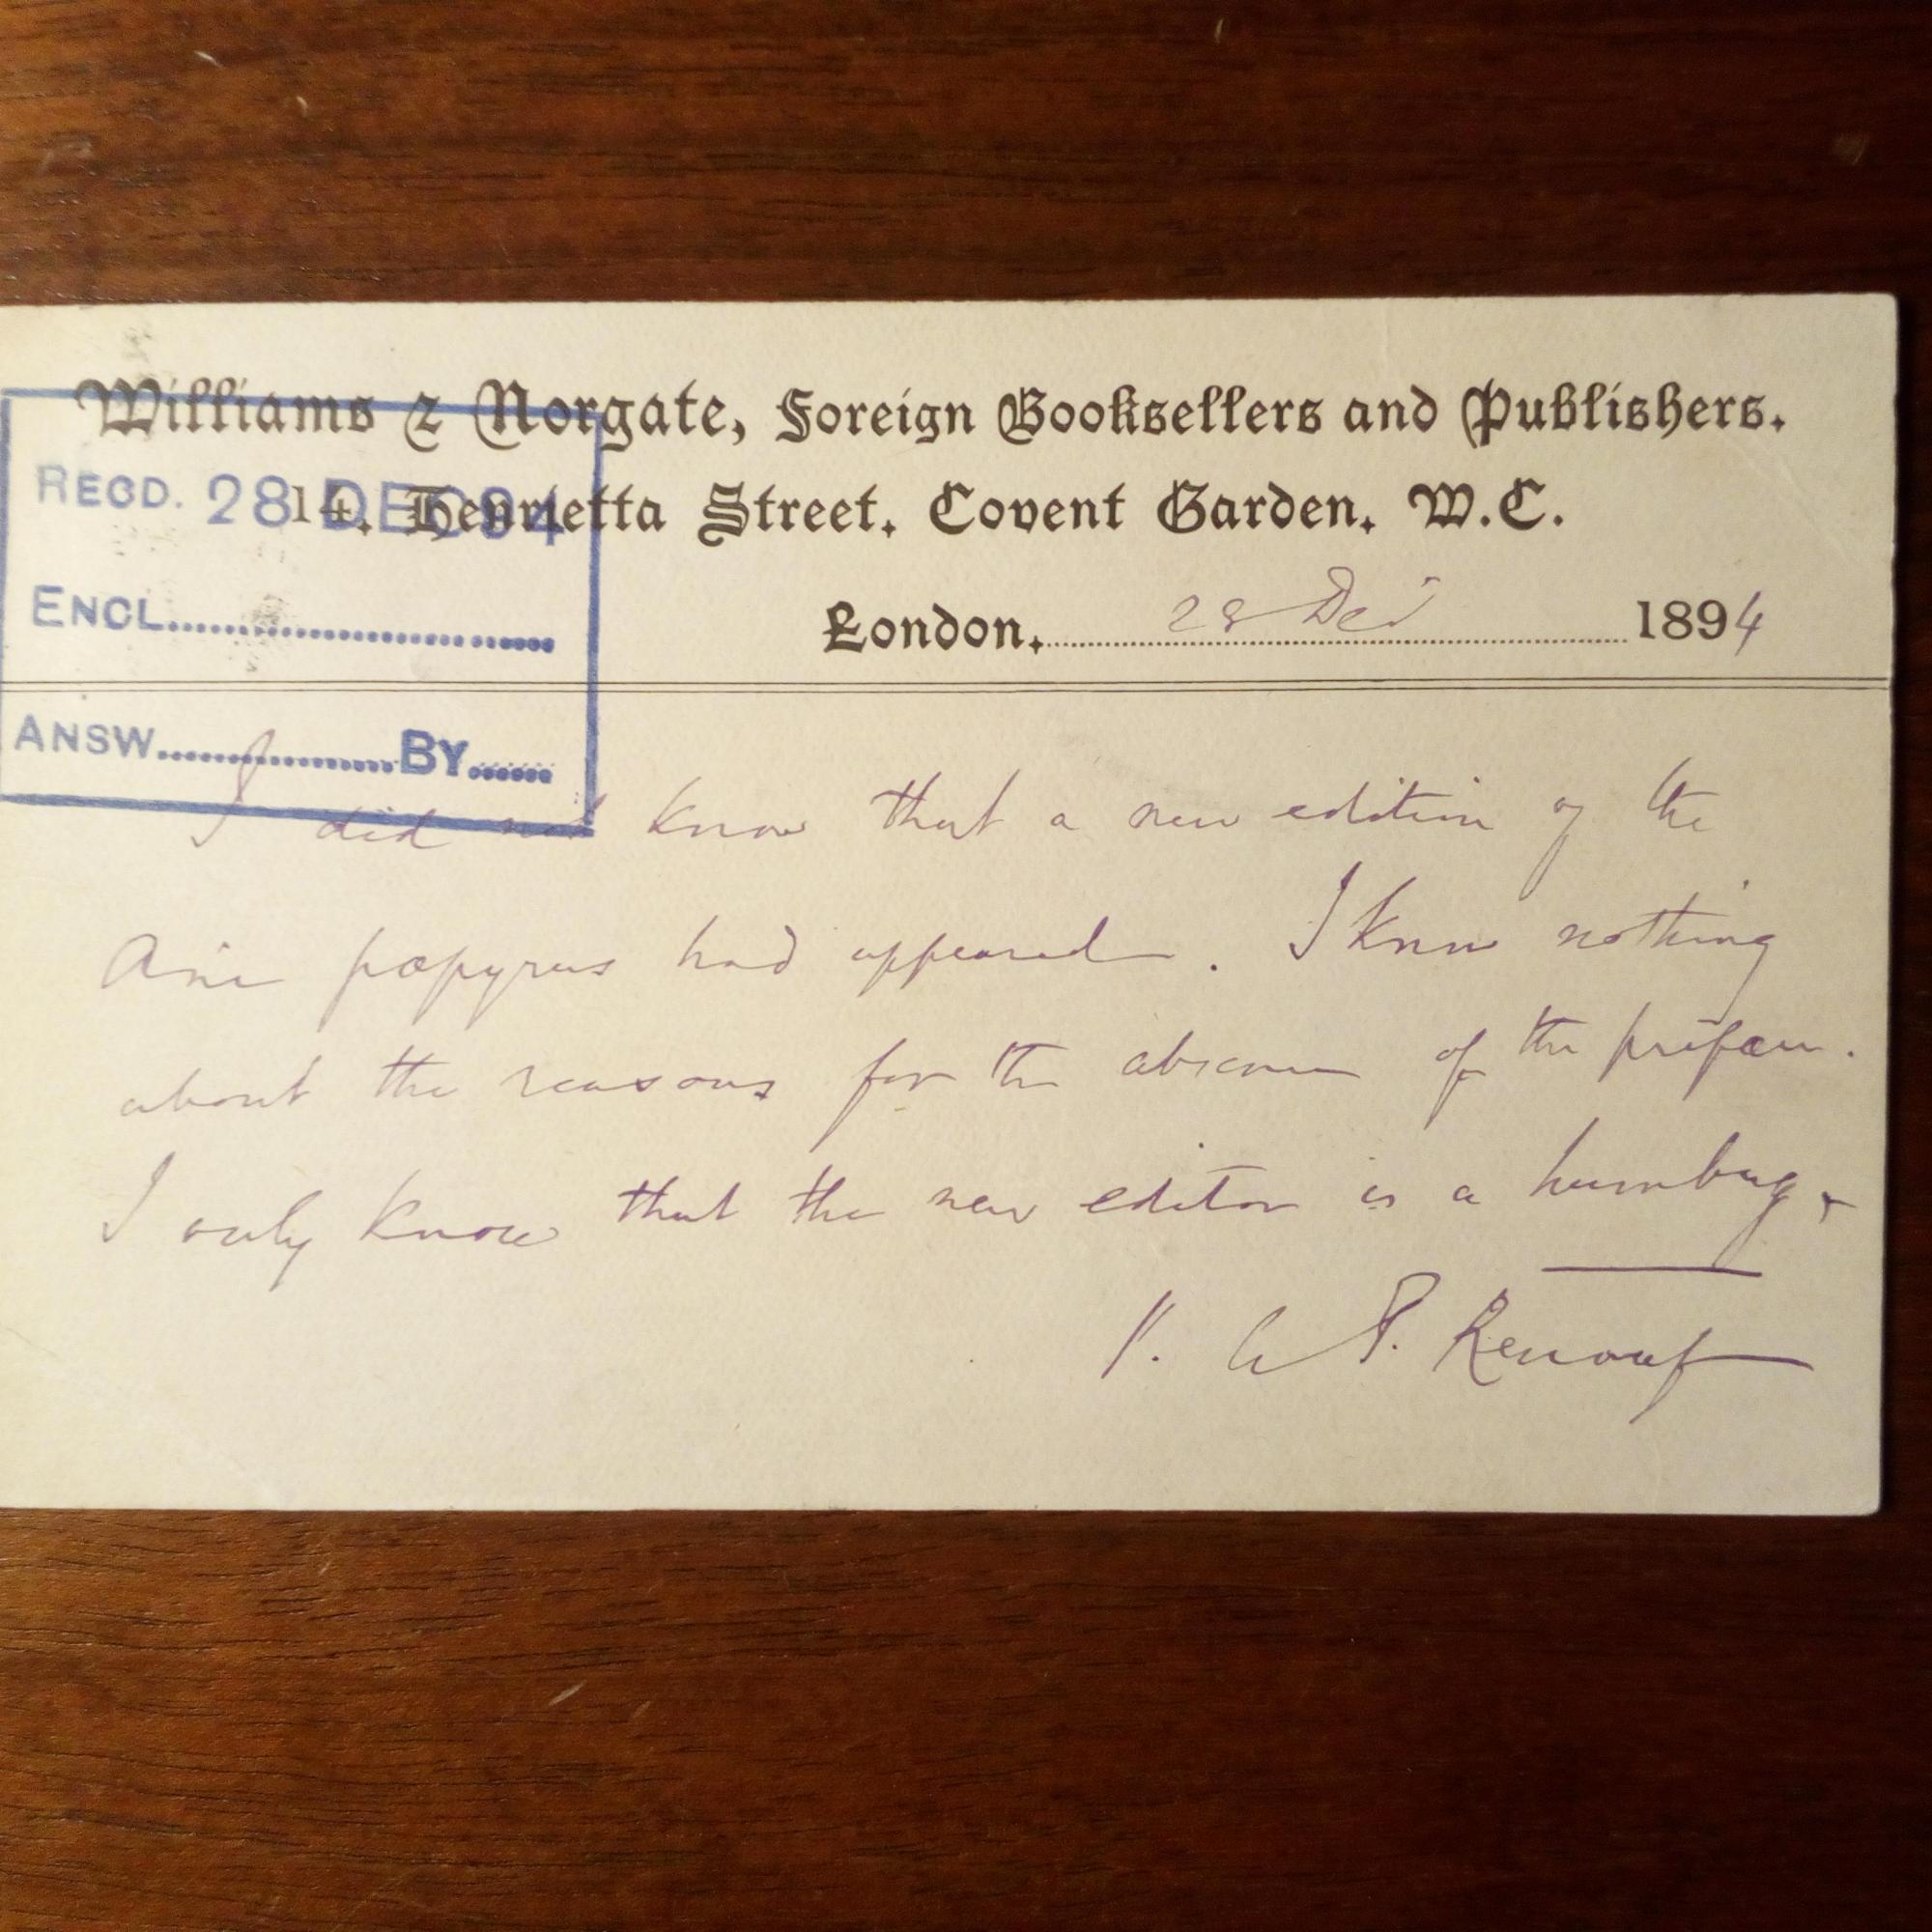 Williams & Norgate, Foreign Booksellers and Publishers.
14, Henrietta Street, Covent Garden, W.C.
London, 28 Dec 1894
RECD. 28 DEC 94
ENCL.
ANSW. BY
I did not know that a new edition of the
Ani papyrus had appeared. I know nothing
about the reasons for the absence of the preface.
I only know that the new editor is a humbug.
P. Renouf